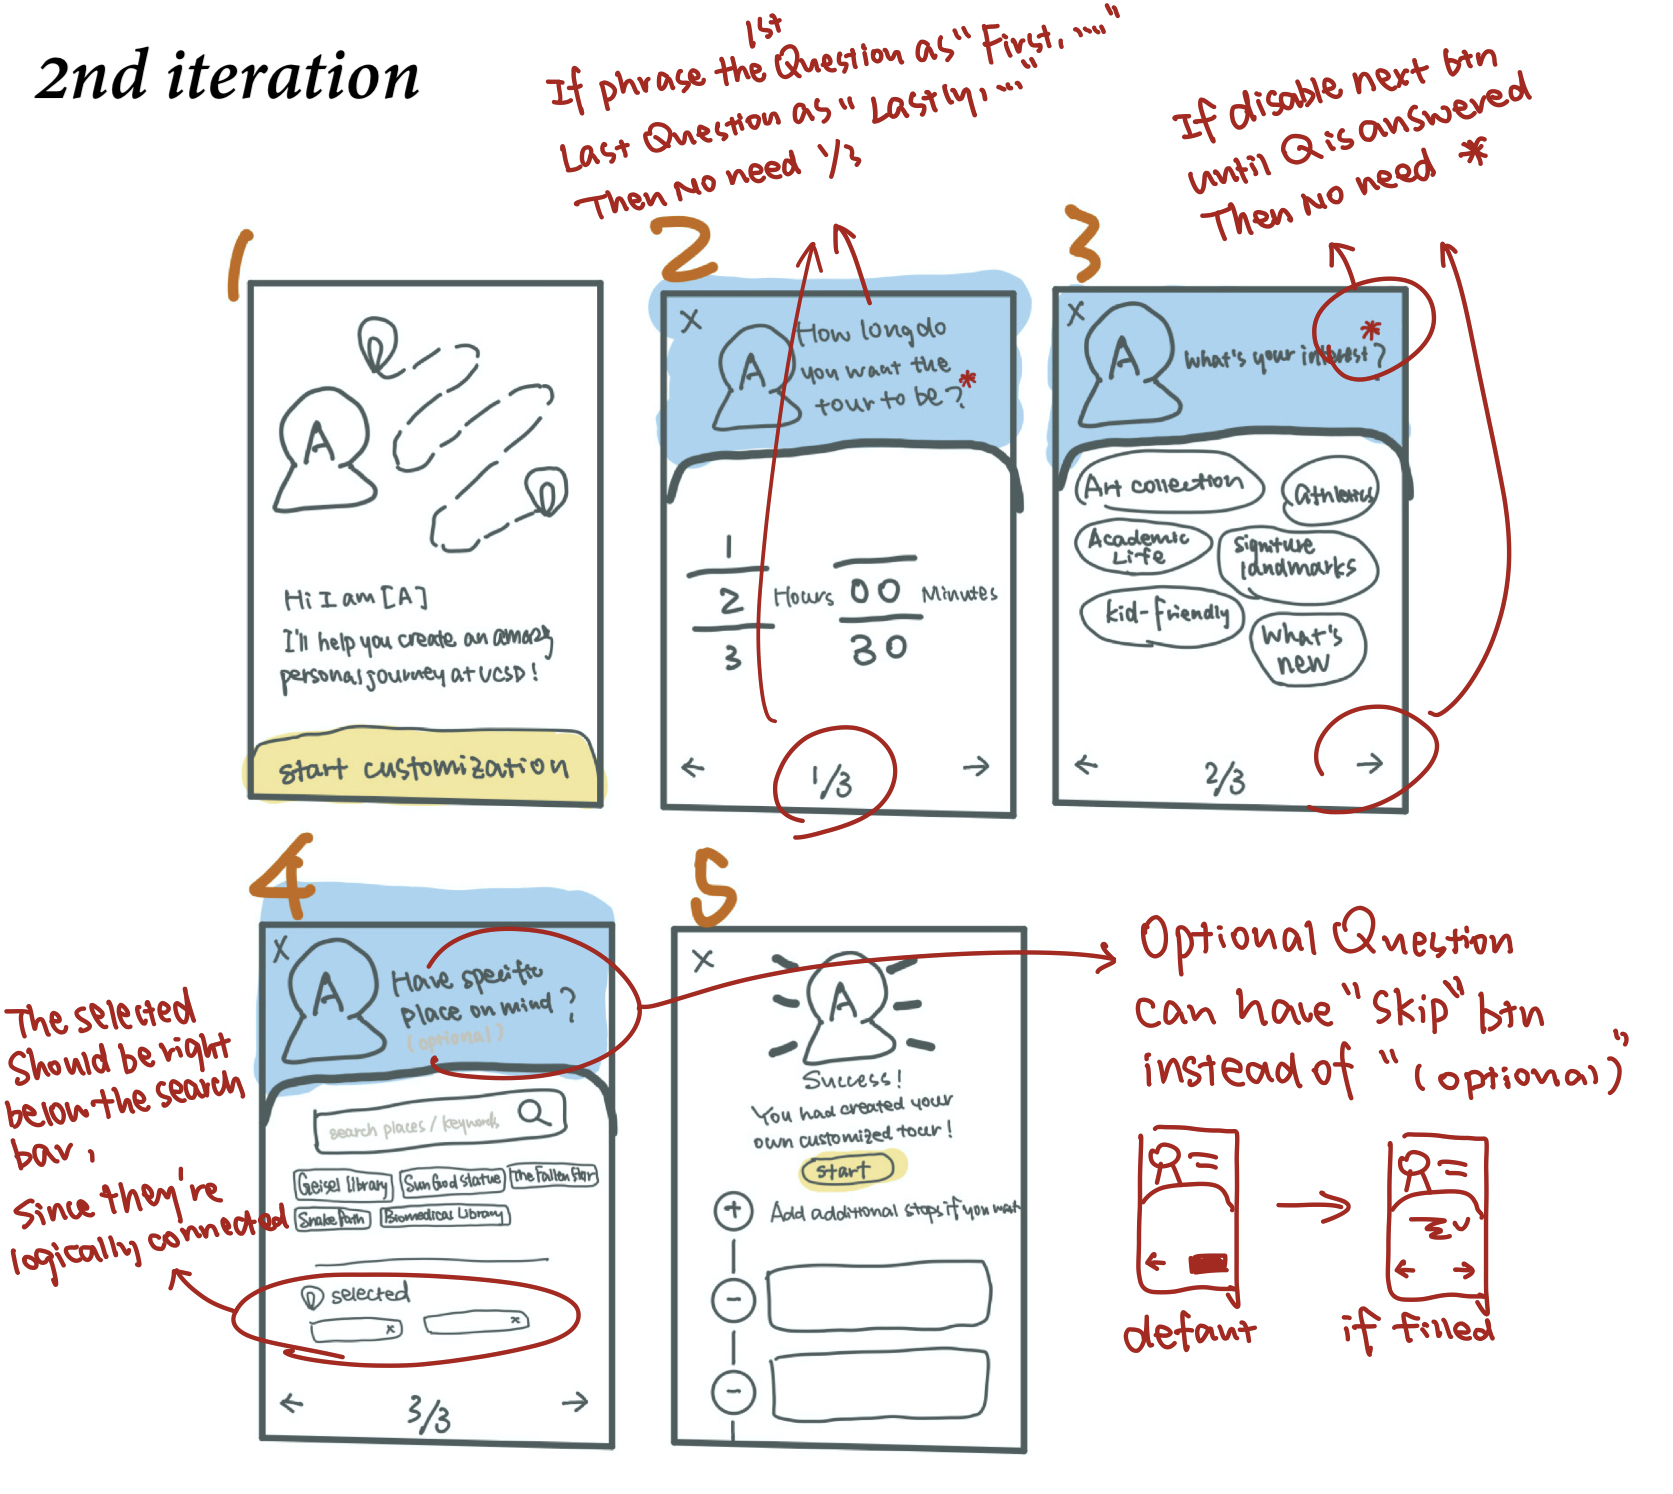 2nd iteration
1st
If phrase the Question as "First, ...."
Last Question as "Lastly, ..."
Then No need 1/3
If disable next btn
until Q is answered
Then No need *
1
A
Hi I am [A]
I'll help you create an amazing
personal journey at UCSD!
start customization
2
X
A
How long do
you want the
tour to be? *
1
2 Hours 00 Minutes
3 30
← 1/3 →
3
X
A
*
what's your interest?
Art collection
athletics
Academic
Life
Signiture
landmarks
kid-friendly
what's
new
← 2/3 →
4
X
A
Have specific
place on mind?
(optional)
search places / keywords
Geisel Library
Sun God Statue
The Fallen Star
Snake Path
Biomedical Library
selected
x
x
← 3/3 →
The selected
Should be right
below the search
bar,
Since they're
logically connected
5
X
A
Success!
You had created your
own customized tour!
start
+ Add additional stops if you want
-
-
Optional Question
can have "skip" btn
instead of "(optional)"
defaut
if filled